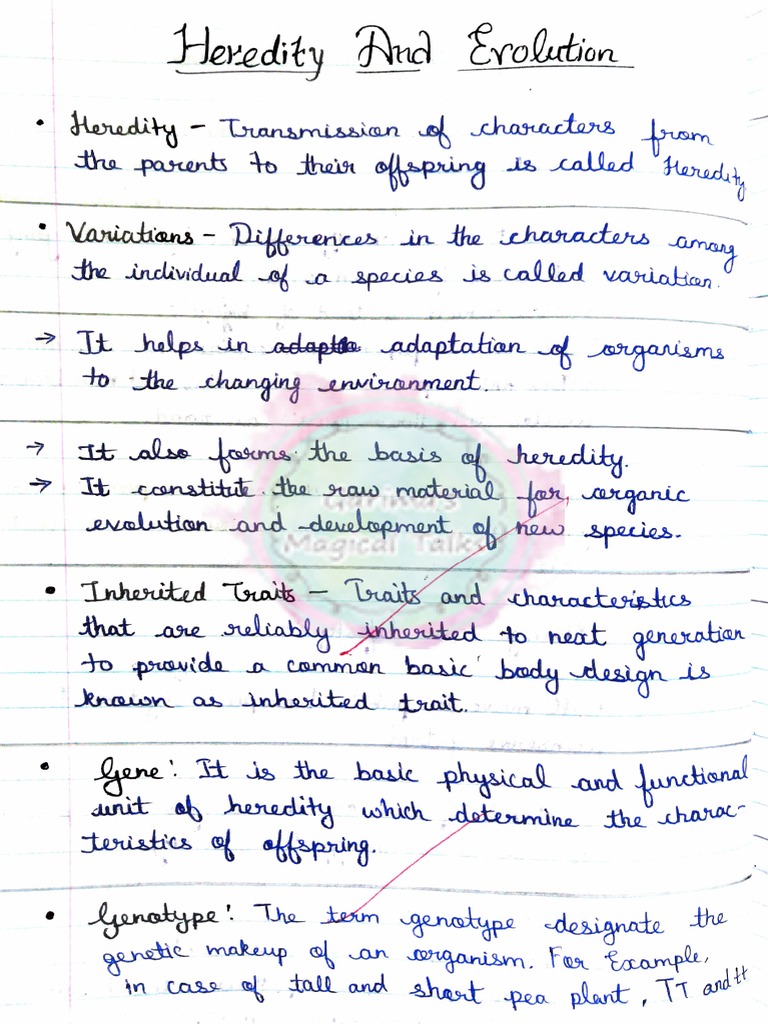 Heredity And Evolution
• Heredity - Transmission of characters from
the parents to their offspring is called Heredity
• Variations - Differences in the characters among
the individual of a species is called variation.
→ It helps in adaptation of organisms
to the changing environment.
→ It also forms the basis of heredity.
→ It constitute the raw material for organic
evolution and development of new species.
Garima's
Magical Talks
• Inherited Traits - Traits and characteristics
that are reliably inherited to next generation
to provide a common basic body design is
known as inherited trait.
• Gene: It is the basic physical and functional
unit of heredity which determine the charac-
teristics of offspring.
• Genotype: The term genotype designate the
genetic makeup of an organism. For Example,
in case of tall and short pea plant, TT and tt